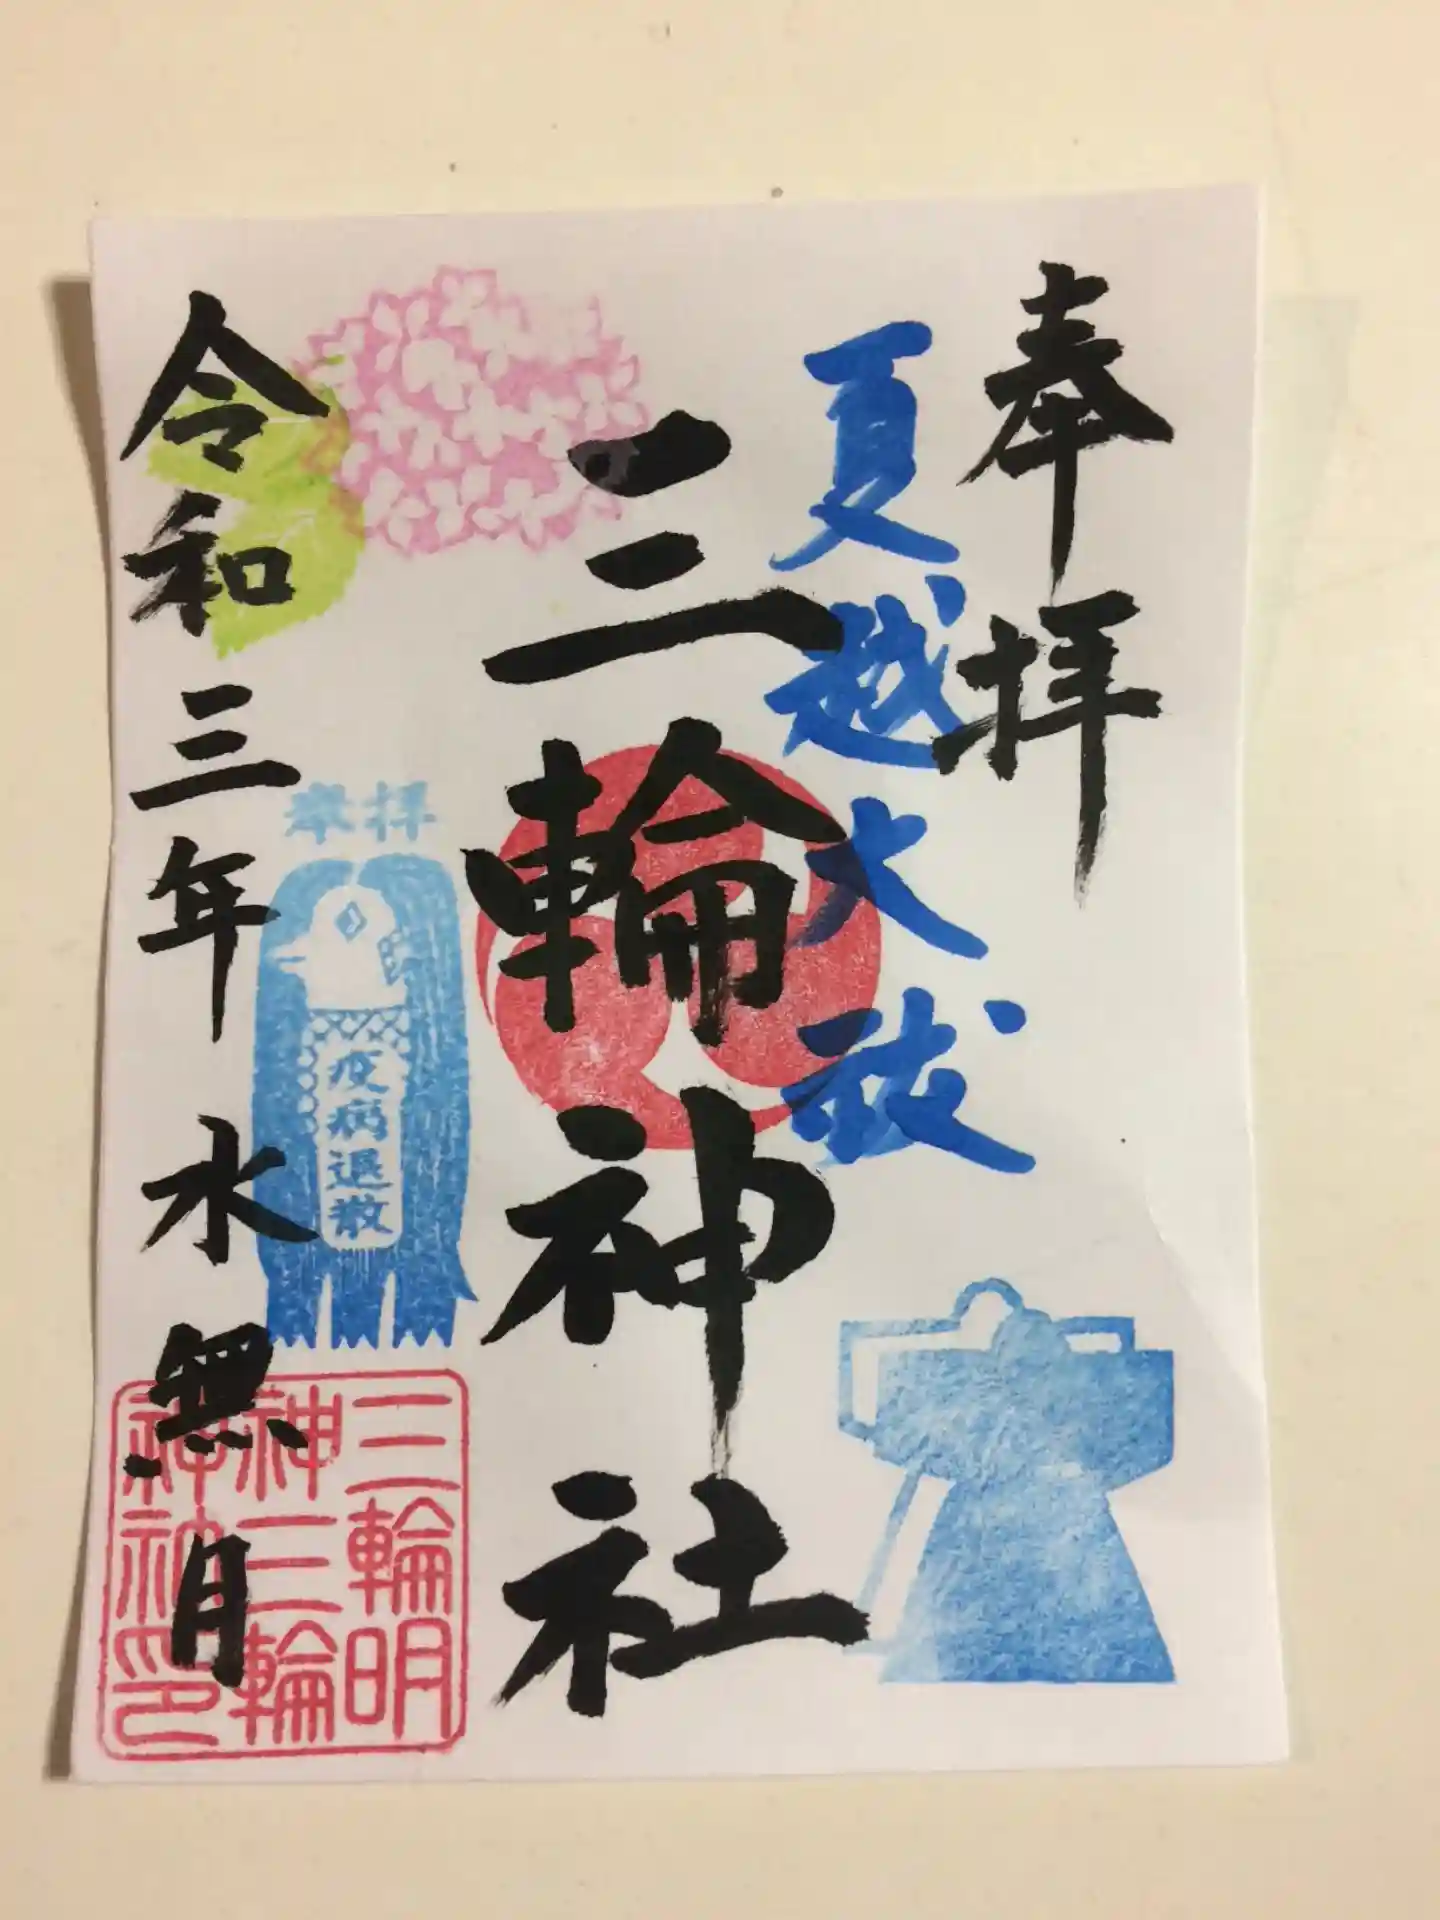 奉拝
夏越大祓
三輪神社
奉拝
疫病退散
令和三年水無月
三輪明
神三輪
神社印